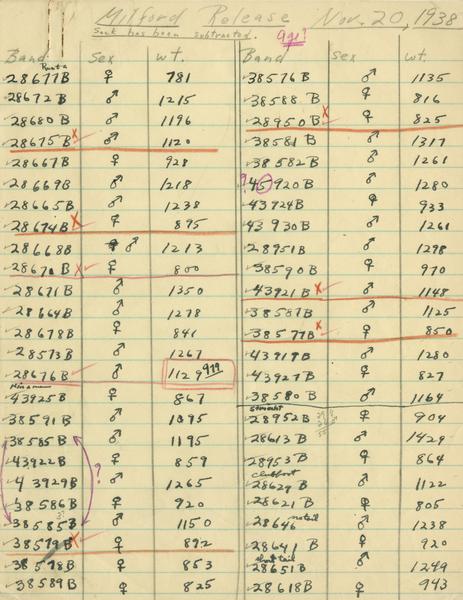 Milford Release Nov. 20, 1938
Sack has been subtracted.
age?
Band Sex wt.
28677B ♀ 781
28672B ♂ 1215
28680B ♂ 1196
28675B X ♂ 1120
28667B ♀ 928
28669B ♂ 1218
28665B ♂ 1238
28674B X ♀ 895
28668B ♂ 1213
28670B X ♀ 800
28671B ♂ 1350
28664B ♂ 1278
28678B ♀ 841
28573B ♂ 1267
28676B ♂ 1129 979
43925B ♀ 867
38591B ♂ 1095
38585B ♂ 1195
43922B ♀ 859
43929B ♂ 1265
?
38586B ♀ 920
38585B ♂ 1150
38579B X ♀ 892
38578B ♀ 853
38589B ♀ 825
Band Sex wt.
38576B ♂ 1135
38588B ♀ 816
28950B X ♀ 825
38581B ♂ 1317
38582B ♂ 1261
? 45920B ♂ 1280
43924B ♀ 933
43930B ♂ 1261
28951B ♂ 1298
38590B ♀ 970
43921B X ♂ 1148
38587B ♂ 1125
38577B X ♀ 850
43919B ♂ 1280
43927B ♀ 827
38580B ♂ 1164
28952B ♀ 904
28613B ♂ 1429
28953B ♀ 864
clubfoot
28629B ♂ 1122
28621B ♀ 805
no tail
28646 ♂ 1238
28641B ♀ 920
short tail
28651B ♂ 1249
28618B ♀ 943